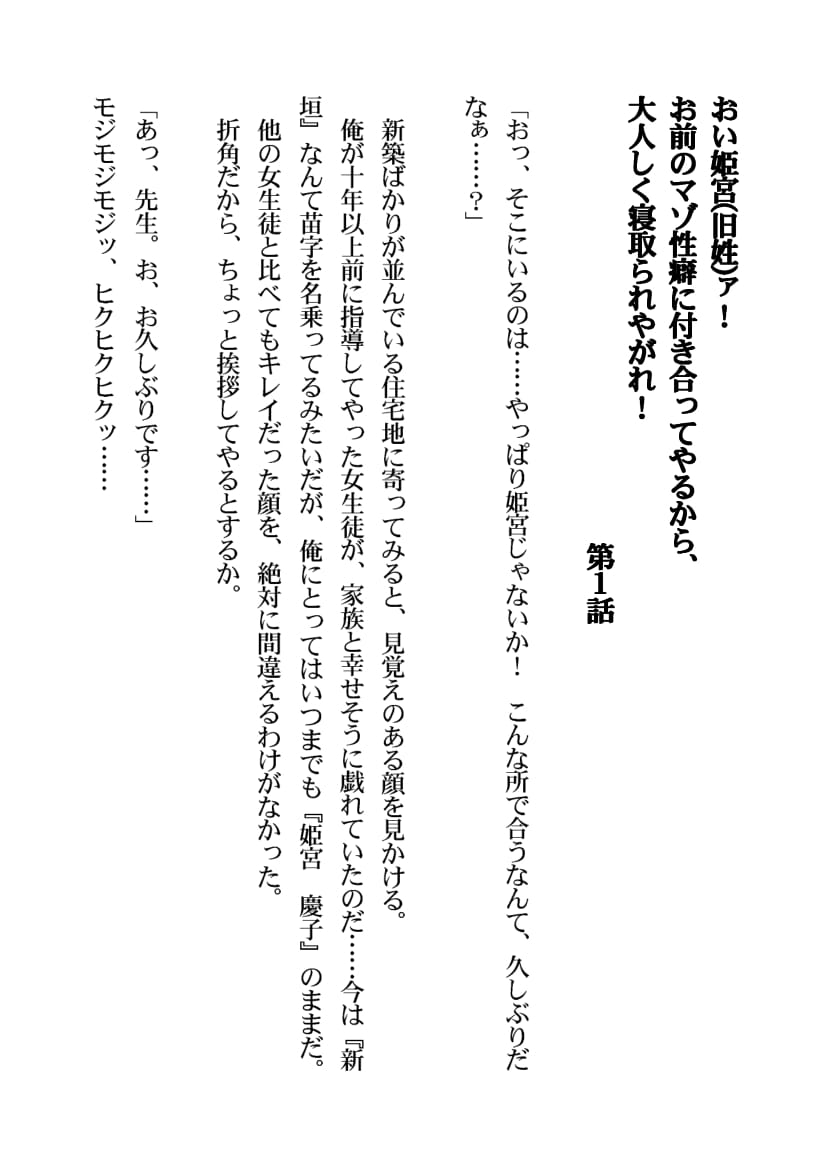 おい姫宮(旧姓)ァ！
お前のマゾ性癖に付き合ってやるから、
大人しく寝取られやがれ！
第１話
「おっ、そこにいるのは……やっぱり姫宮じゃないか！　こんな所で合うなんて、久しぶりだ
なぁ……？」
新築ばかりが並んでいる住宅地に寄ってみると、見覚えのある顔を見かける。
俺が十年以上前に指導してやった女生徒が、家族と幸せそうに戯れていたのだ……今は『新
垣』なんて苗字を名乗ってるみたいだが、俺にとってはいつまでも『姫宮　慶子』のままだ。
他の女生徒と比べてもキレイだった顔を、絶対に間違えるわけがなかった。
折角だから、ちょっと挨拶してやるとするか。
「あっ、先生。お、お久しぶりです……」
モジモジモジッ、ヒクヒクヒクッ……